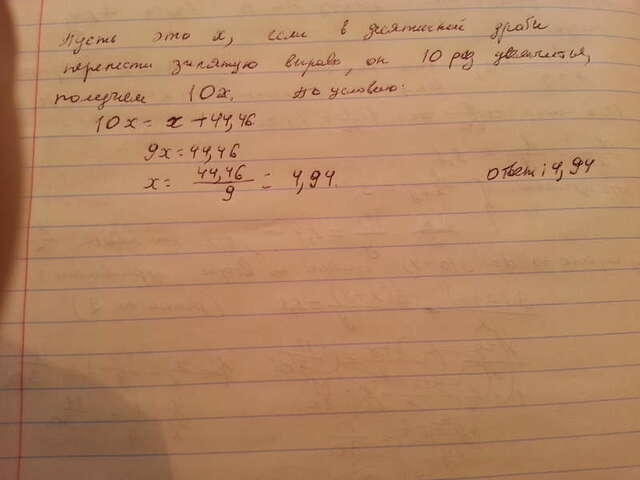 Пусть это x, если в десятичной дроби
перенести запятую вправо, он 10 раз увеличиться,
получаем 10x. по условию:
10x = x + 44,46
9x = 44,46
x = 44,46 / 9 = 4,94. ответ: 4,94